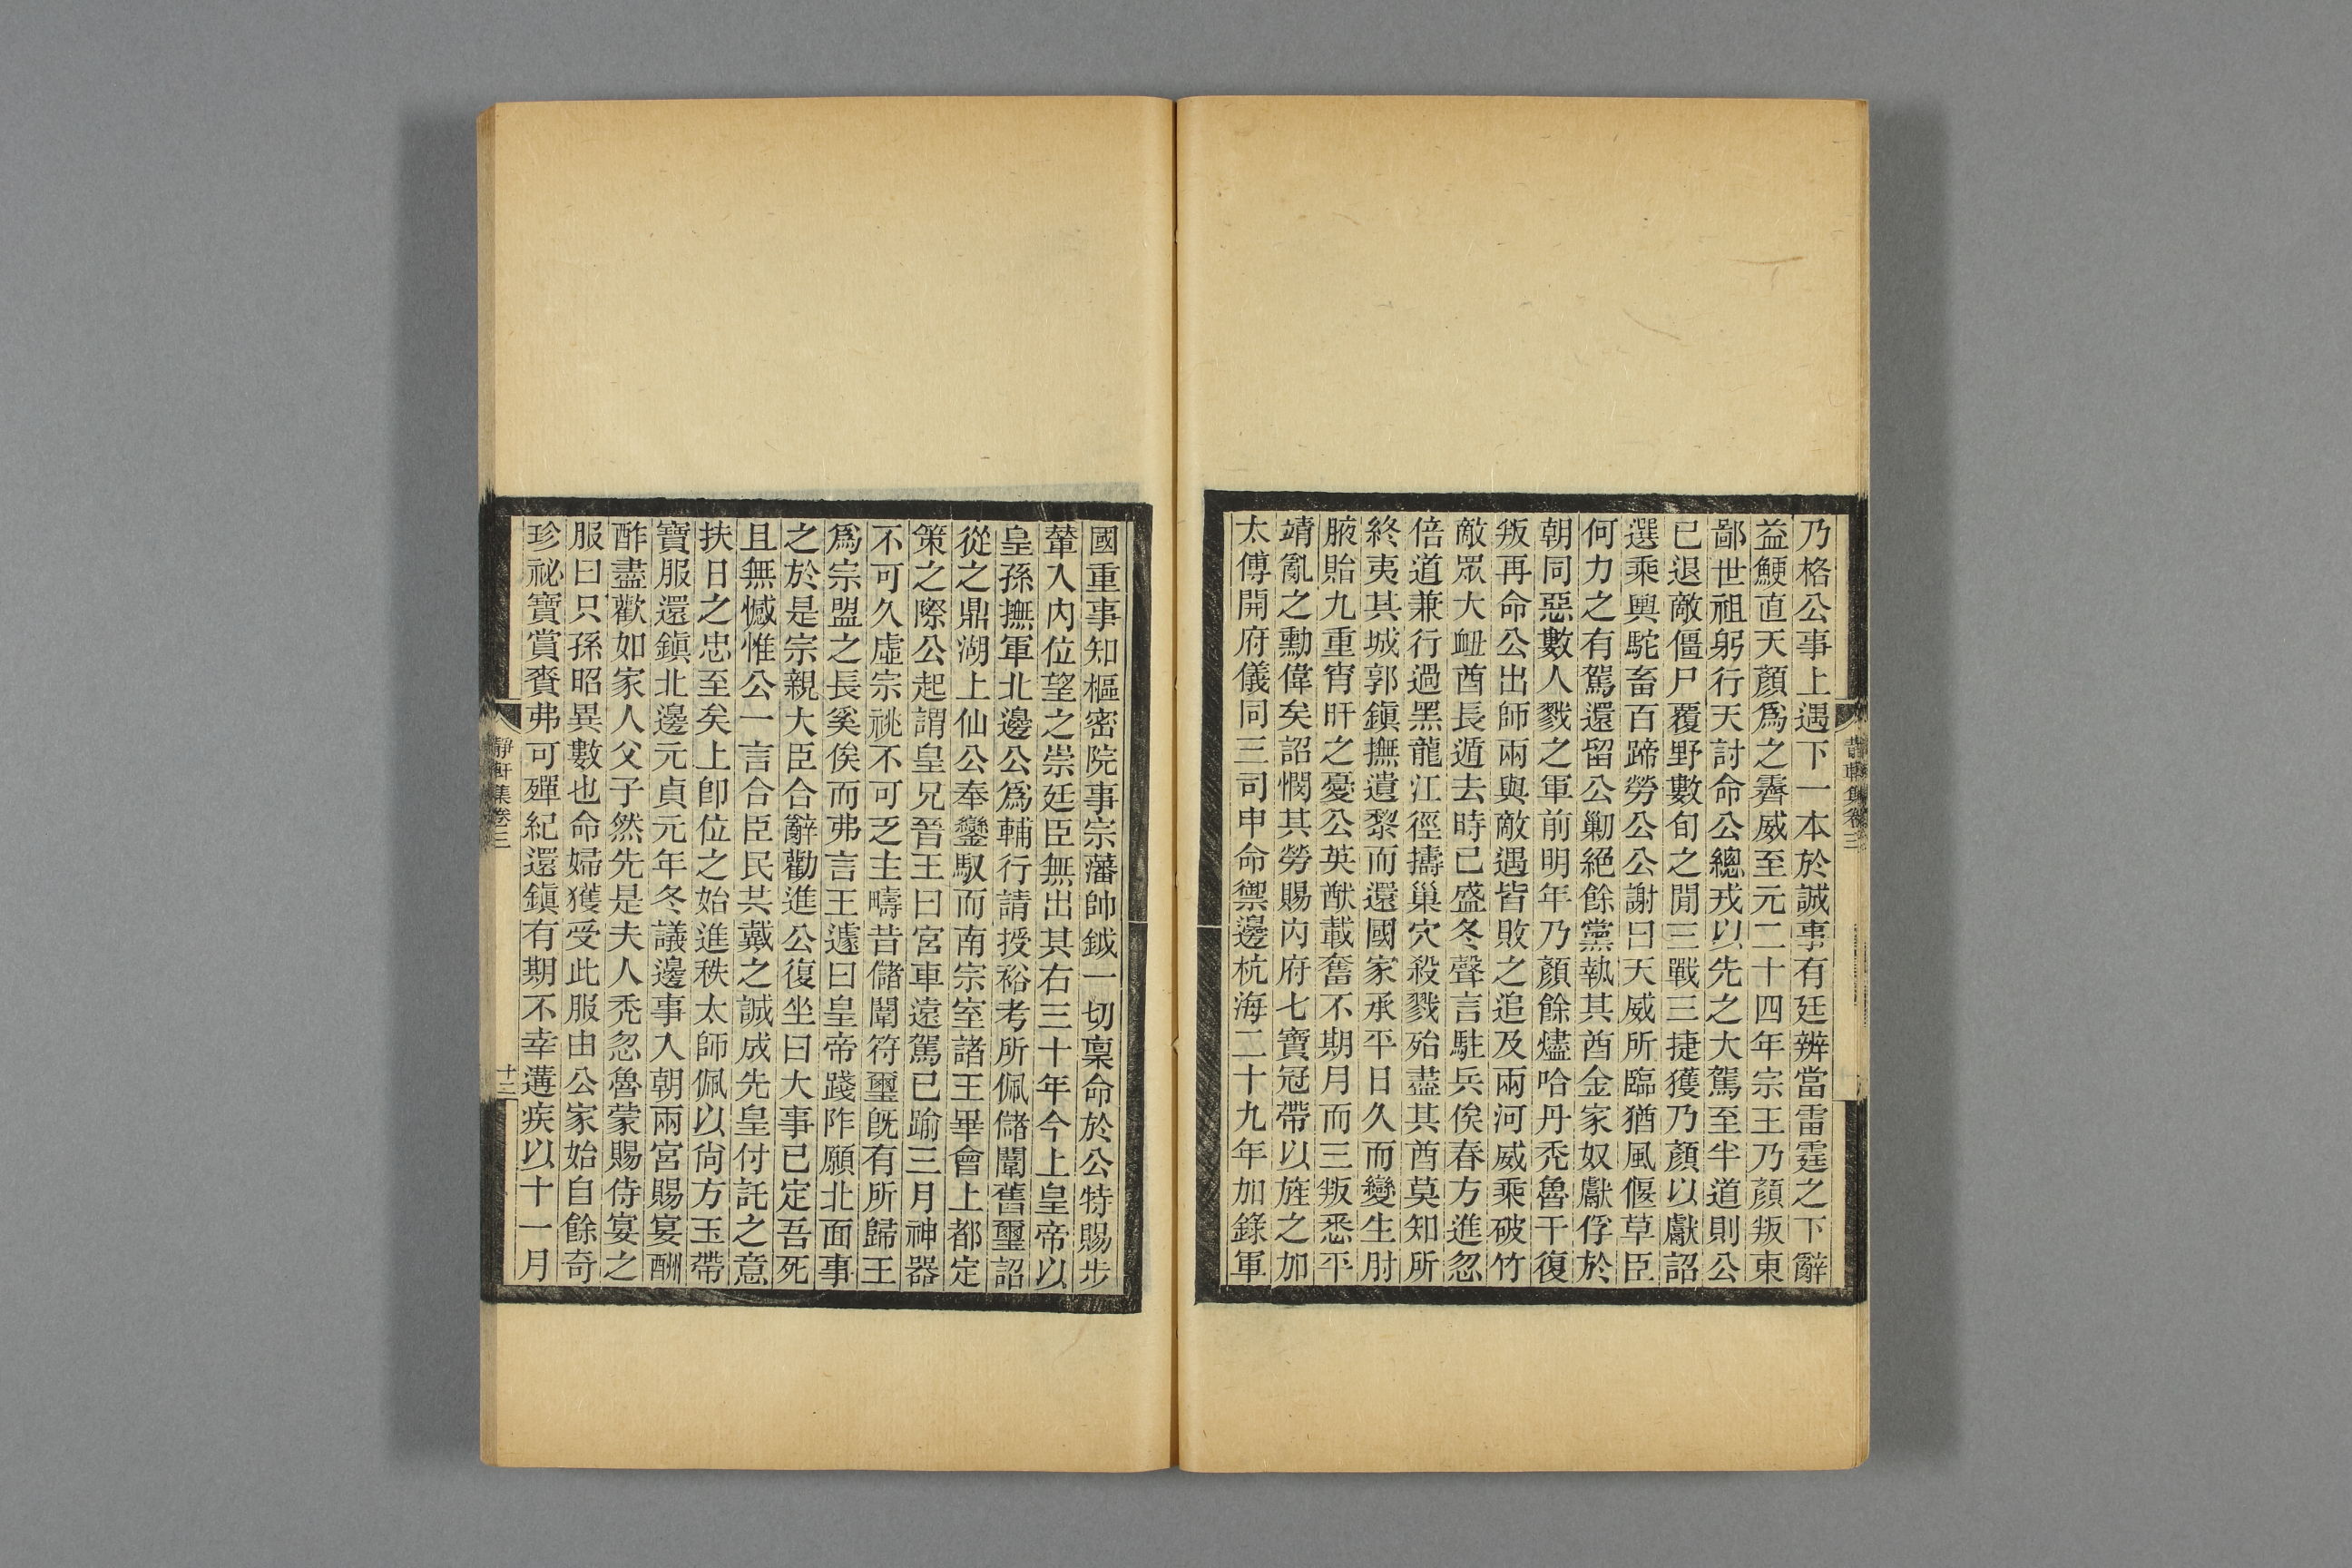 乃格公事上遇下一本於誠事有廷辨當雷霆之下辭
益鯁直天顏爲之霽威至元二十四年宗王乃顏叛東
鄙世祖躬行天討命公總戎以先之大駕至半道則公
已退敵僵尸覆野數旬之閒三戰三捷獲乃顏以獻詔
選乘輿駝畜百蹄勞公公謝曰天威所臨猶風偃草臣
何力之有駕還留公勦絕餘黨執其酋金家奴獻俘於
朝同惡數人戮之軍前明年乃顏餘燼哈丹禿魯干復
叛再命公出師兩與敵遇皆敗之追及兩河威乘破竹
敵眾大衄酋長遁去時已盛冬聲言駐兵俟春方進忽
倍道兼行過黑龍江徑擣巢穴殺戮殆盡其酋莫知所
終夷其城郭鎭撫遺黎而還國家承平日久而變生肘
腋貽九重宵旰之憂公英猷載奮不期月而三叛悉平
靖亂之勳偉矣詔憫其勞賜內府七寶冠帶以旌之加
太傅開府儀同三司申命禦邊杭海二十九年加錄軍
國重事知樞密院事宗藩帥鉞一切稟命於公特賜步
輦入內位望之崇廷臣無出其右三十年今上皇帝以
皇孫撫軍北邊公爲輔行請授裕考所佩儲闈舊璽詔
從之鼎湖上仙公奉鑾馭而南宗室諸王畢會上都定
策之際公起謂皇兄晉王曰宮車遠駕已踰三月神器
不可久虛宗祧不可乏主疇昔儲闈符璽旣有所歸王
爲宗盟之長奚俟而弗言王遽曰皇帝踐阼願北面事
之於是宗親大臣合辭勸進公復坐曰大事已定吾死
且無憾惟公一言合臣民共戴之誠成先皇付託之意
扶日之忠至矣上卽位之始進秩太師佩以尙方玉帶
寶服還鎭北邊元貞元年冬議邊事入朝兩宮賜宴酬
酢盡歡如家人父子然先是夫人禿忽魯蒙賜侍宴之
服曰只孫昭異數也命婦獲受此服由公家始自餘奇
珍祕寶賞賚弗可殫紀還鎭有期不幸遘疾以十一月
靜軒集卷三
十三